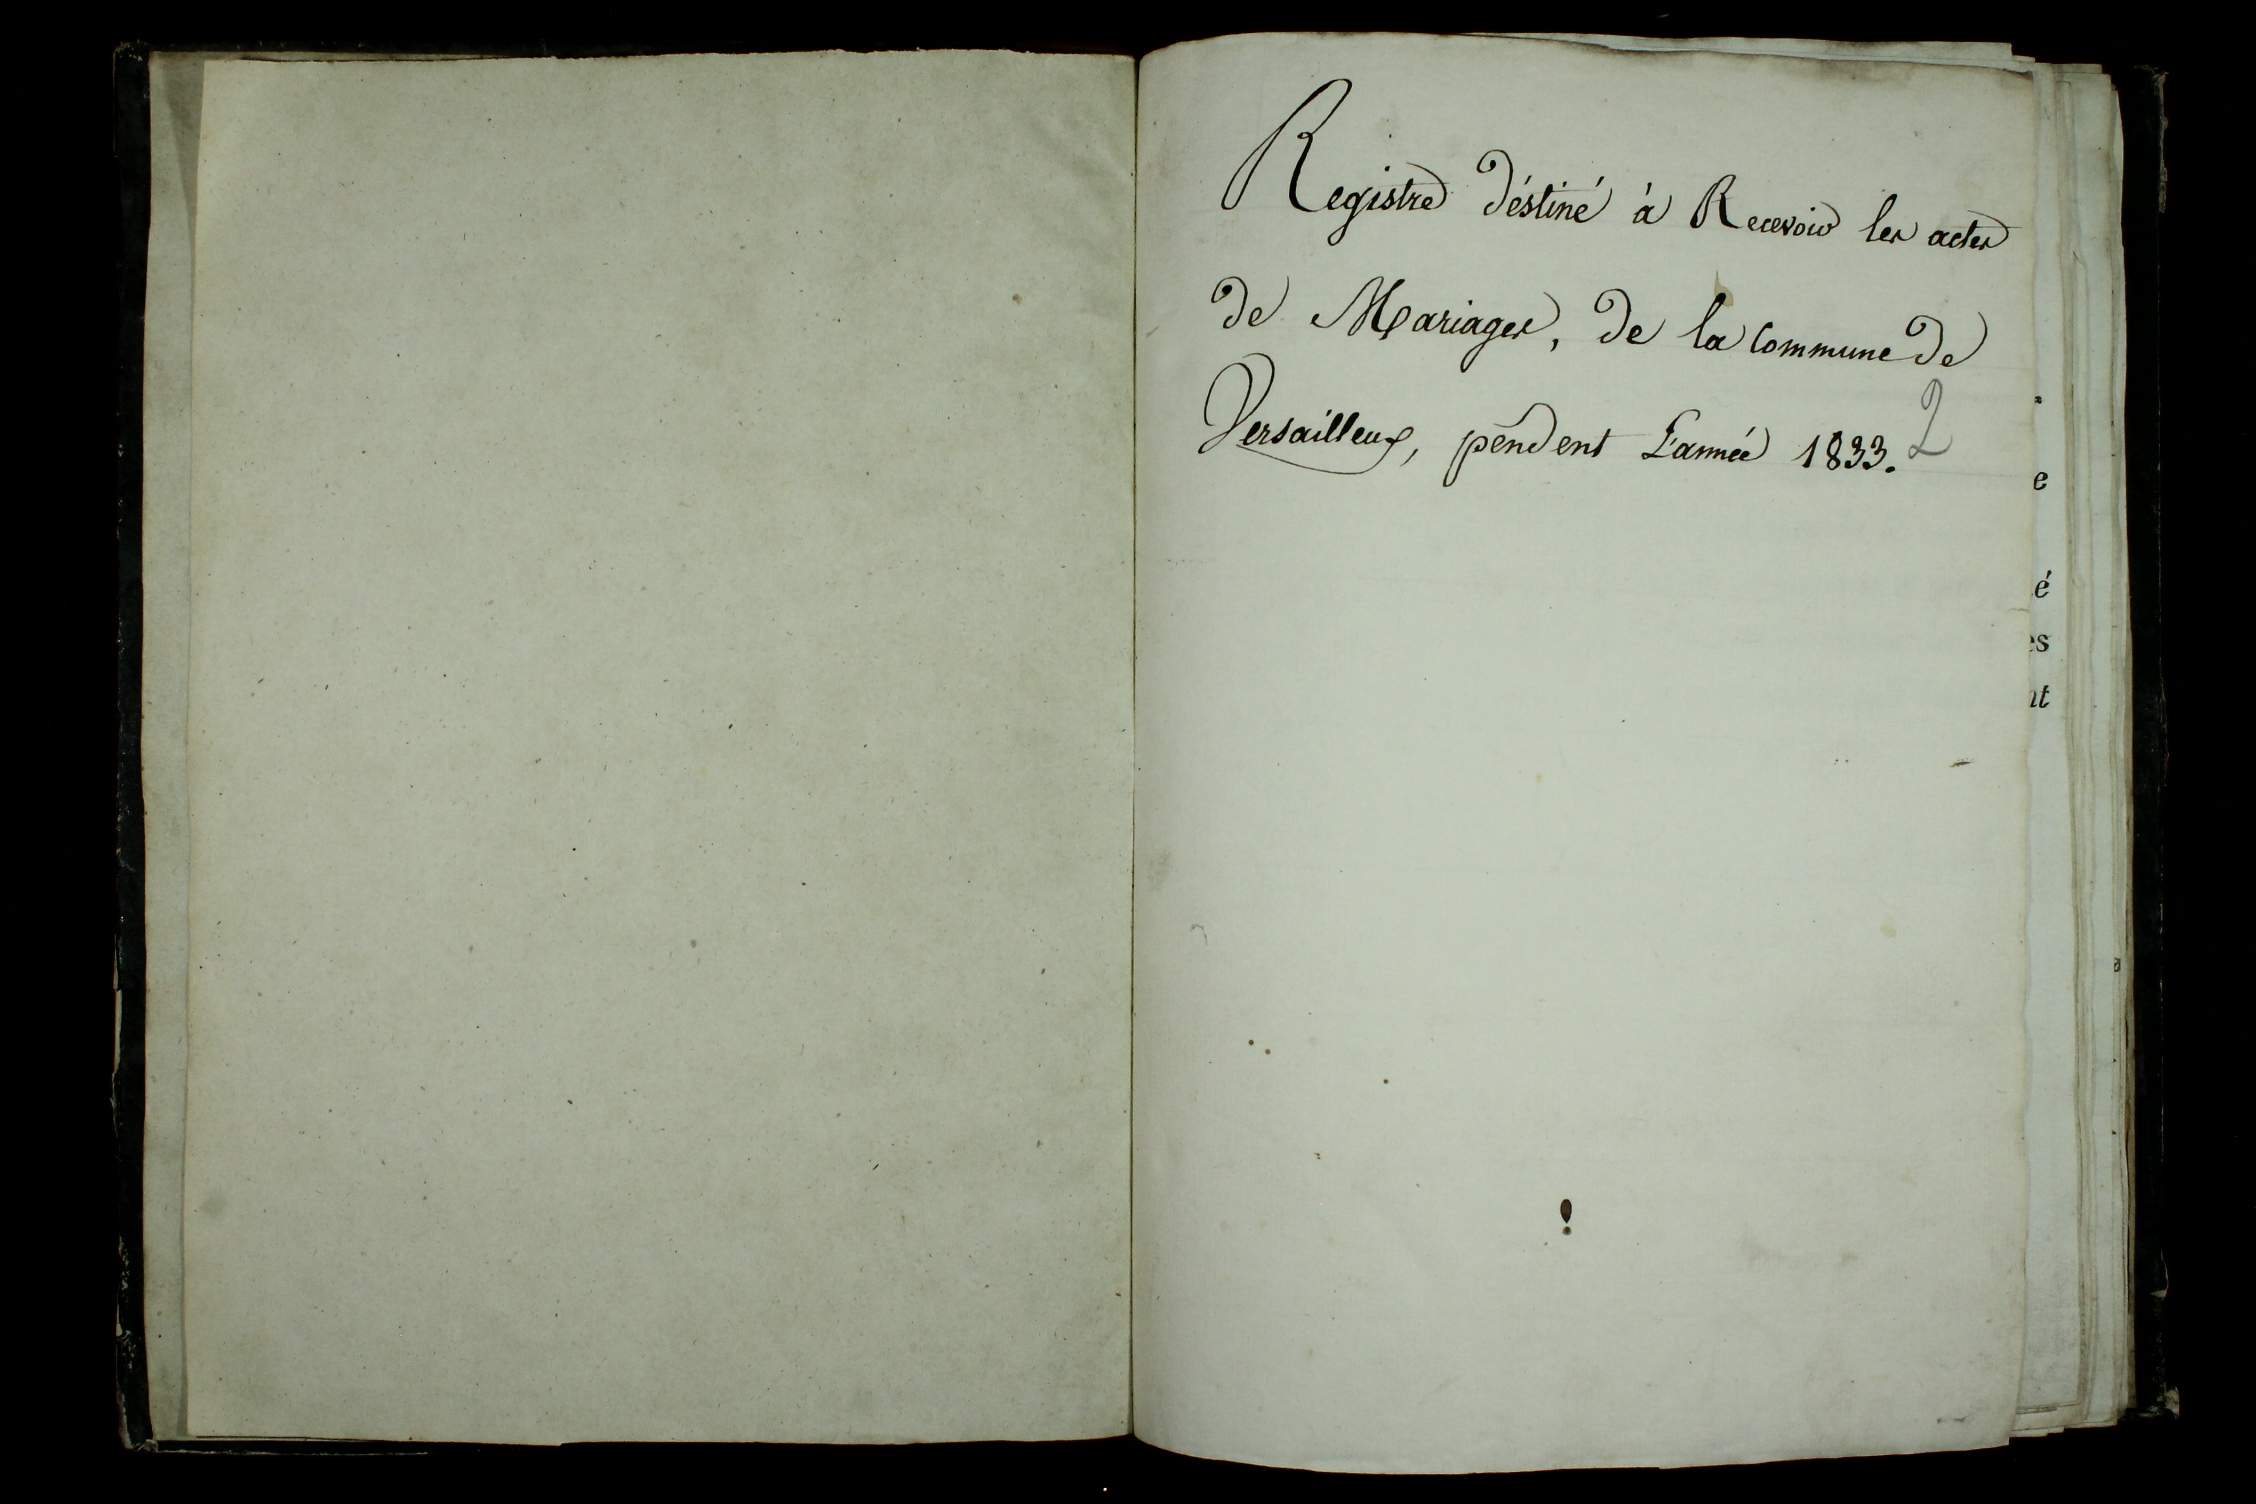 Registre déstiné à Recevoir les actes
de Mariages, de la Commune de
Versailleux, pendent L'année 1833. 2
e
é
es
nt